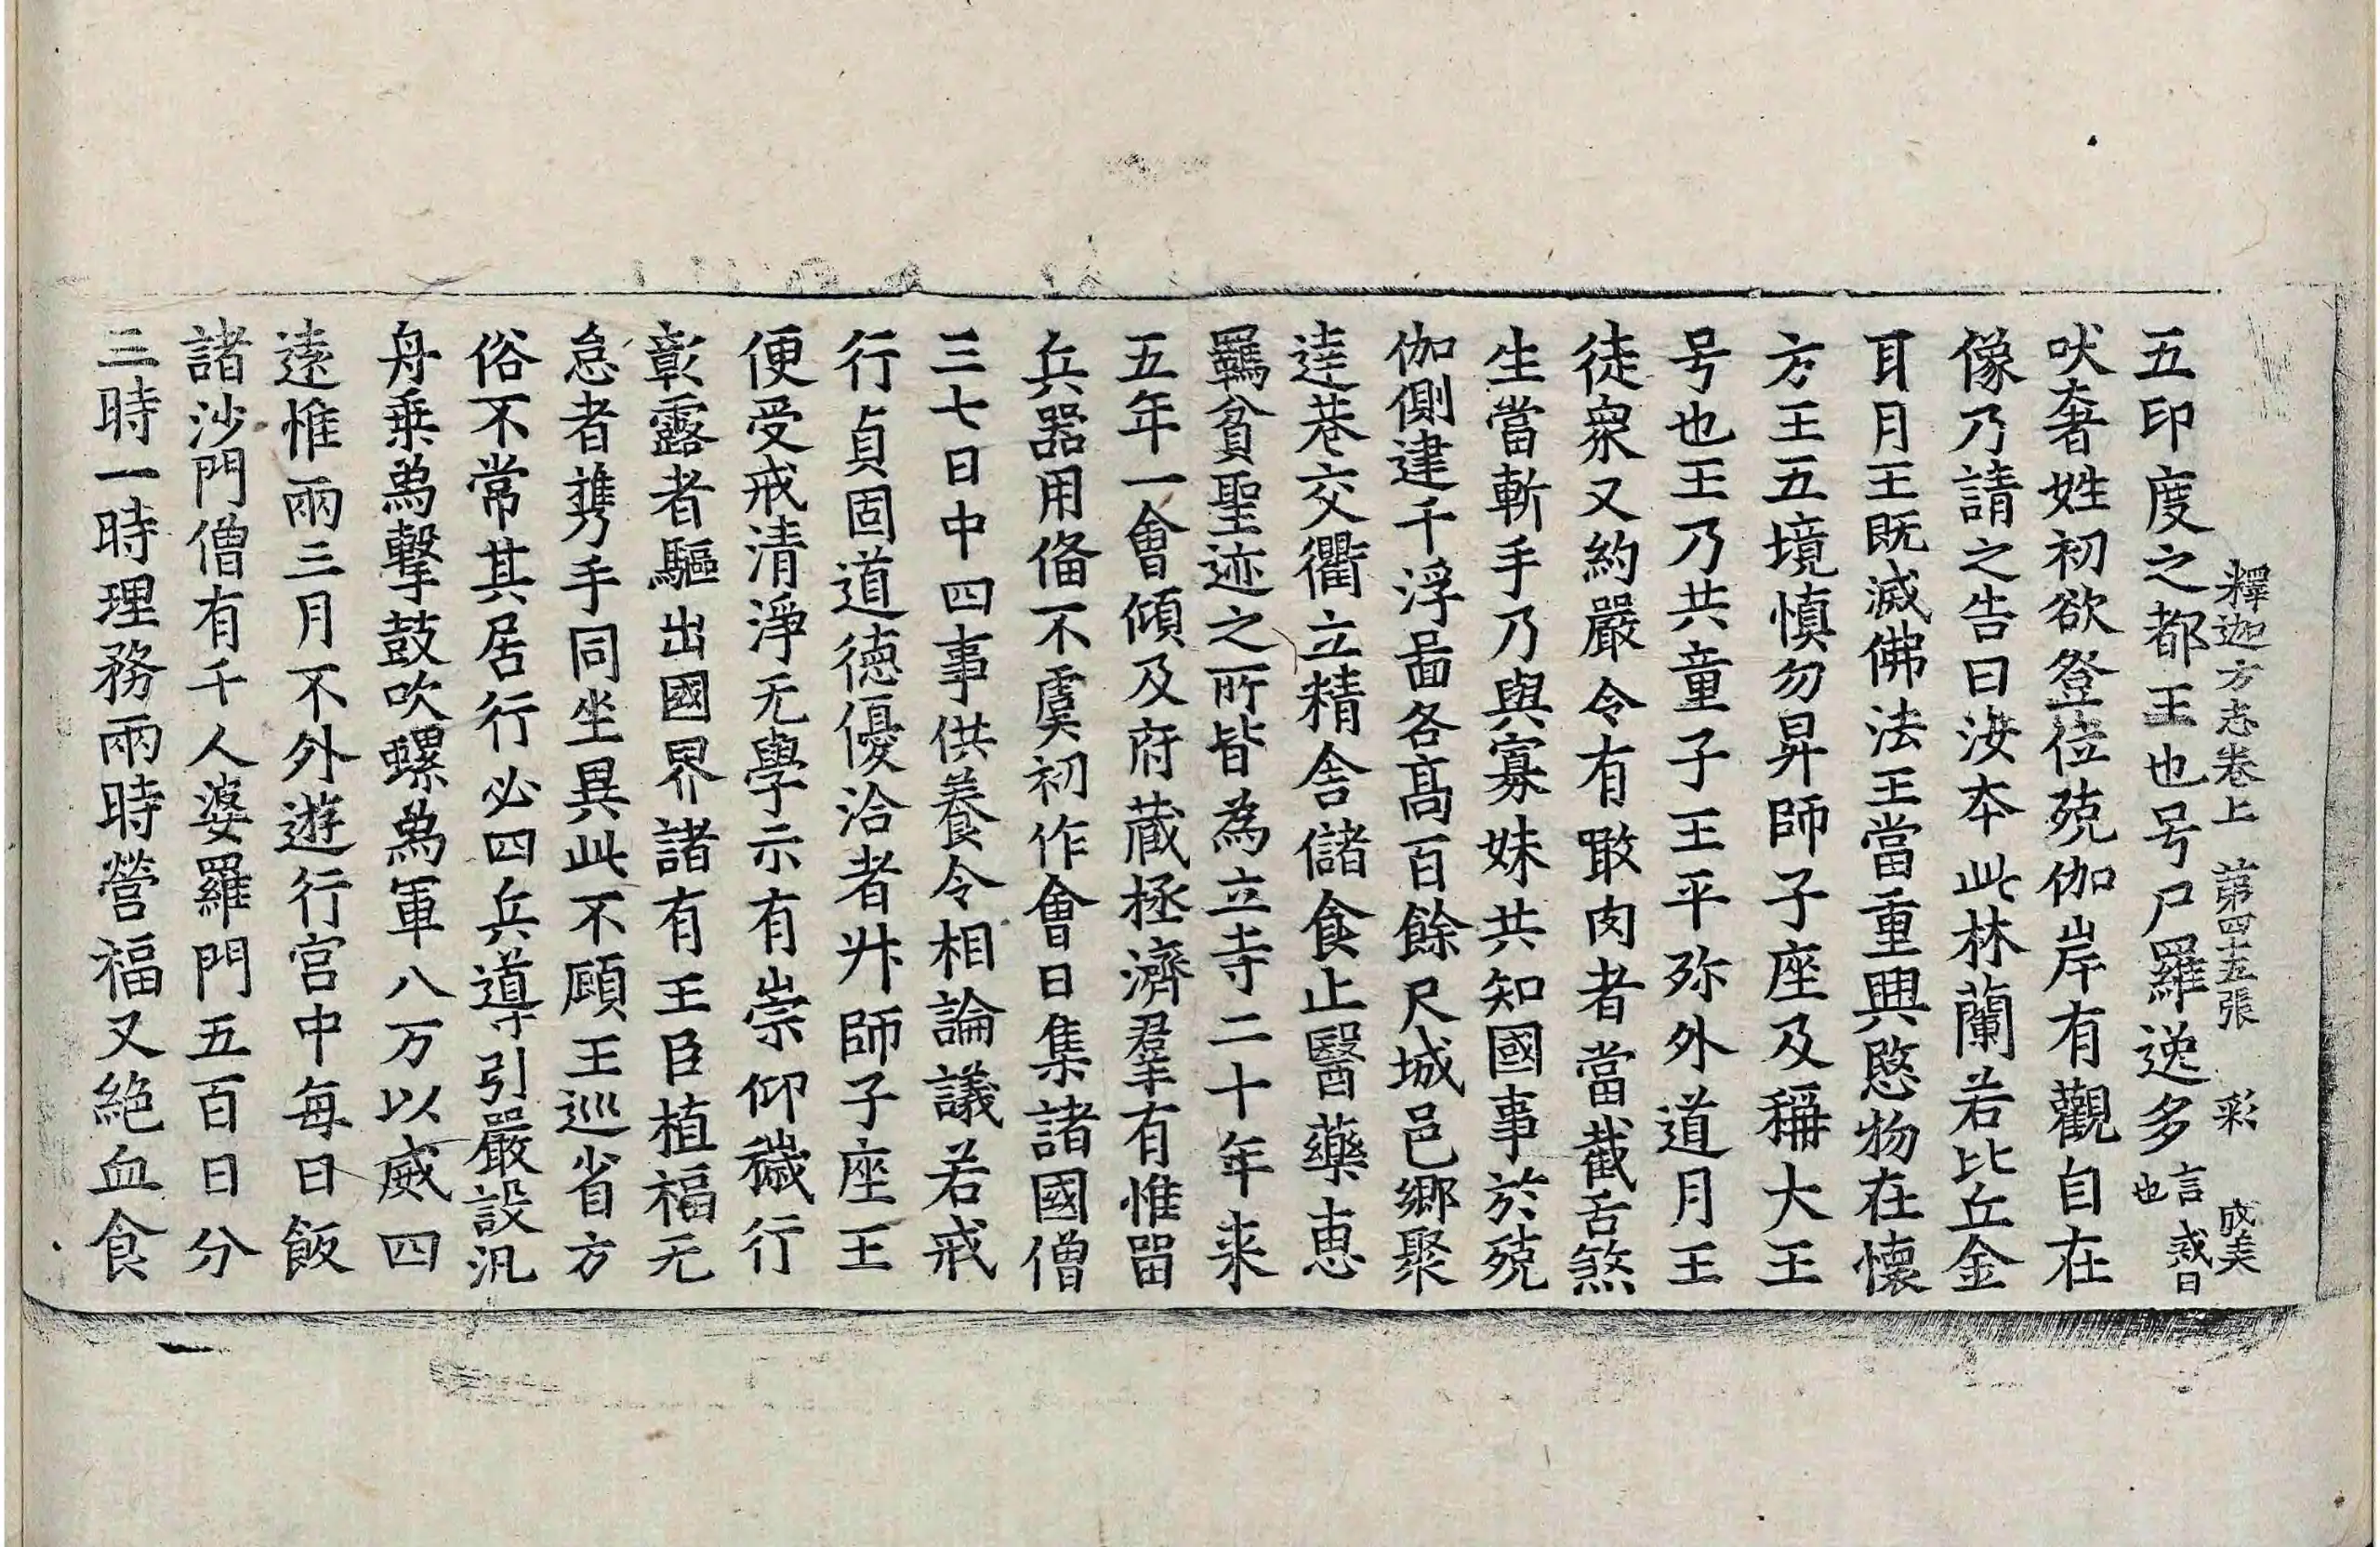 釋迦方志卷上 第四十五張 彩 成美
五印度之都王也号尸羅逸多言戒日也
吠奢姓初欲登位殑伽岸有觀自在
像乃請之告曰汝本此林蘭若比丘金
耳月王既滅佛法王當重興慜物在懷
方王五境慎勿昇師子座及稱大王
号也王乃共童子王平殄外道月王
徒衆又約嚴令有噉肉者當截舌煞
生當斬手乃與寡妹共知國事於殑
伽側建千浮啚各髙百餘尺城邑鄉聚
逹巷交衢立精舍儲食止醫藥惠
羇貧聖迹之所皆為立寺二十年来
五年一會傾及府蔵拯濟羣有惟留
兵器用俻不虞初作會日集諸國僧
三七日中四事供養令相論議若戒
行貞固道德優洽者升師子座王
便受戒清淨无學示有崇仰穢行
彰露者驅出國界諸有王臣植福无
怠者携手同坐異此不顧王巡省方
俗不常其居行必四兵導引嚴設汎
舟乗爲擊鼓吹螺爲軍八万以威四
遠惟兩三月不外遊行宮中每日飯
諸沙門僧有千人婆羅門五百日分
三時一時理務兩時營福又絶血食